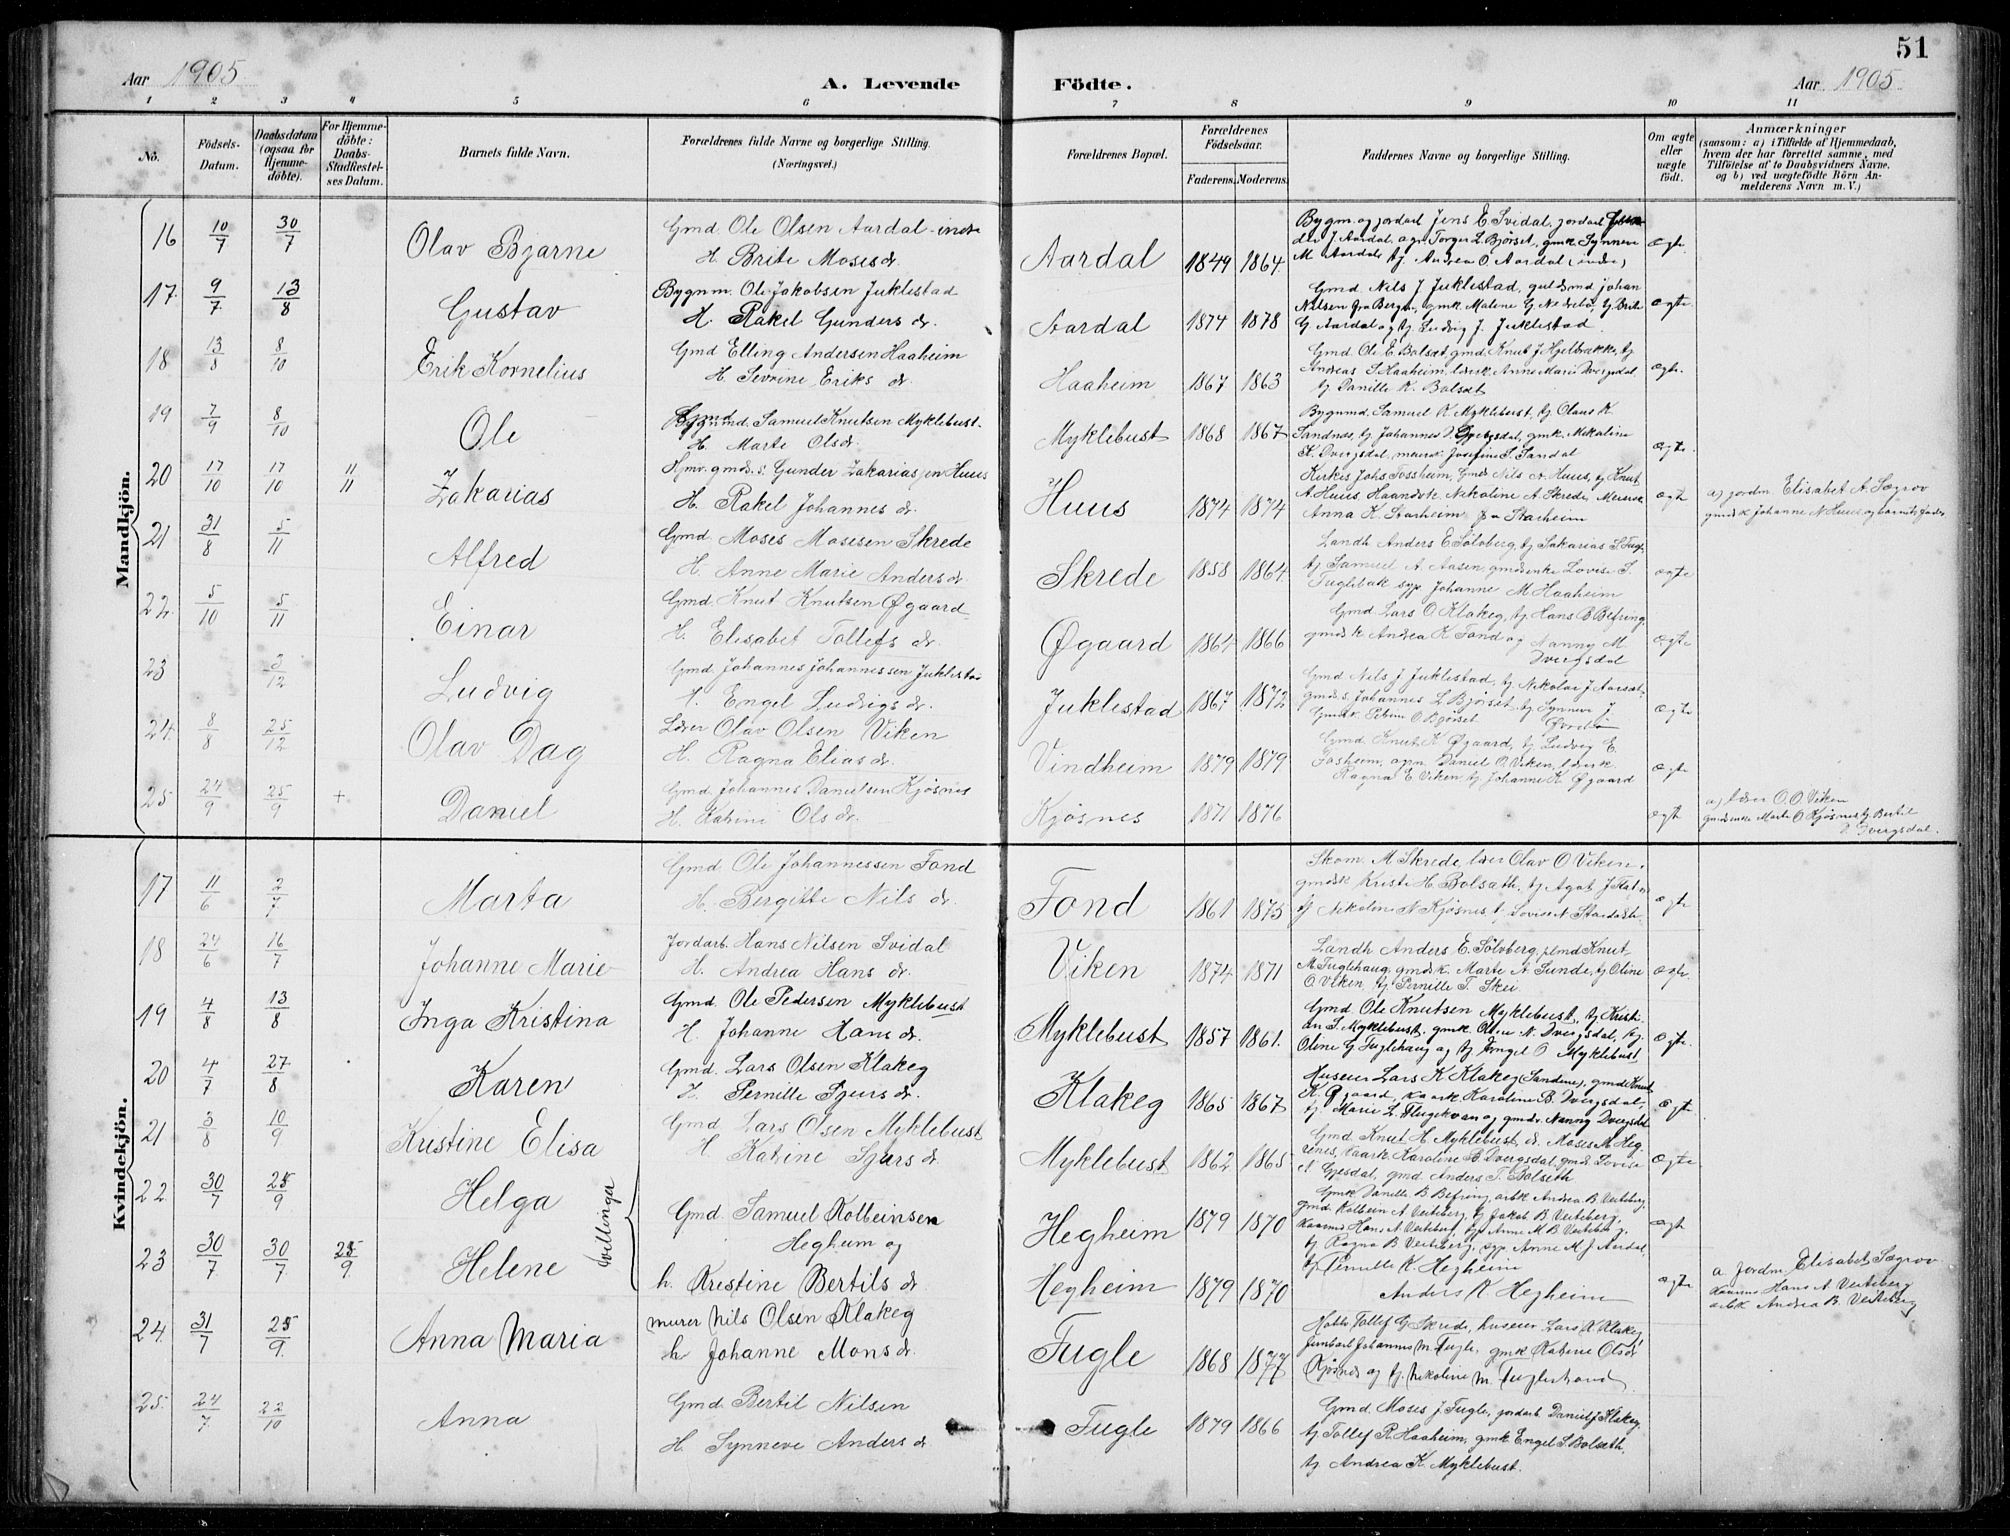 51
Aar 1905
A. Levende
Födte.
Aar 1905
1 2 3 4 5 6 7 8 9 10 11
No.
Födsels-
Datum.
Daabsdatum
(ogsaa for
Hjemme-
döbte).
For Hjemme-
döbte:
Daabs-
Stadfæstel-
ses Datum.
Barnets fulde Navn.
Forældrenes fulde Navne og borgerlige Stilling.
(Næringsvei.)
Forældrenes Bopæl.
Forældrenes
Födselsaar.
Faderens. Moderens.
Faddernes Navne og borgerlige Stilling.
Om ægte
eller
uægte
födt.
Anmærkninger
(saasom: a) i Tilfælde af Hjemmedaab,
hvem der har forrettet samme, med
Tilföielse af to Daabsvidners Navne,
og b) ved uægtefödte Börn An-
melderens Navn m. V.)
Mandkjön.
16 10/7 30/7 Olav Bjarne
Gmd Ole Olsen Aardal indre
H. Brite Mosesdr.
Aardal 1849 1864
Bygm. og jordarb Jens E Svidal, jordarb
J Aardal, agr. Torger L Bjørset, gmk Synneve
M Aardal tj. Andrea O Aardal (indre)
ægte
17. 9/7 13/8 Gustav
Bygnm. Ole Jakobsen Juklestad
H. Rakel Gunders dr.
Aardal 1874 1878
Gmd Nils J Juklestad, guldsmd Johan
Nilsen fra Bergen, gmk Malene G Nedrebø, tj. Brite
G Aardal og tj. Ludvig J. Juklestad
ægte
18 13/8 8/10 Erik Kornelius
Gmd Elling Andersen Haaheim
H. Sevrine Eriks dr.
Haaheim 1867 1863
Gmd Ole E Bolsæt, gmd Knut J Hjelbrække, tj
Andreas S Haaheim, lærk Anne Marie Dvergsdal,
tj Danille K. Bolsæt
ægte.
19 7/9 8/10 Ole
Gmd Samuel Knutsen Myklebust.
H. Marte Olsdr.
Myklebust 1868 1867
Bygnmd. Samuel K Myklebust, tj Olaus K.
Sandnes, tj Johannes D Dvergsdal, gmk. Mikaline
K. Dvergsdal, meiersk Josefine S. Sandal
ægte
20 17/10 17/10 11/11 Zakarias
Hmv. gmds.s. Gunder Zakariasen Huus
H. Rakel Johannes dr.
Huus 1874 1874
Kirkes Johs Fossheim, Gmd Nils A Huus, tj Knut
A. Huus, Haandvk Nikoline A Skrede, Meiersk
Anna K. Starheim fra Starheim
ægte
a) jordm Elisabet A. Sægrov
gmdsk Johanne N Huus og barnets fader
21 31/8 5/11 Alfred
Gmd. Moses Mosesen Skrede
H. Anne Marie Anders dr
Skrede 1858 1864
Landh Anders E Sölvberg, tj Sakarias S Fugl-
tj Samuel A Aasen, gmdsenke Lovise S.
Fuglebak syp. Johanne M Haaheim
ægte
22. 5/10 5/11 Einar
Gmd. Knut Knutsen Øgaard
H. Elisabet Tollefs dr.
Øgaard 1864 1866
Gmd Lars O. Klakeg, tj Hans B Befring,
gmdsk Andrea K Fond og Nanny M
Dvergsdal
ægte
23 3/12 Ludvig
Gmd Johannes Johannessen Juklestad
H. Engel Ludvigs dr.
Juklestad 1867 1872
Gmd Nils J Juklestad, tj Nikolai J Aarsæt,
gmds.s. Johannes L Bjørset, tj Synneve J
Øvrebø
Gmdsk O Bjørset
ægte
24. 8/8 25/12 Olav Dag
Lærer Olav Olsen Viken
H. Ragna Elias dr.
Vindheim 1879 1879
Gmd. Knut K Øgaard, tj Ludvig E.
Fosheim, agn. Daniel O. Viken, lærk.
Ragna E Viken, tj Johanne K. Øgaard
ægte
25. 24/9 25/9 + Daniel
Gmd Johannes Danielsen Kjøsnes
H. Katrine Olsdr.
Kjøsnes 1871 1876
ægte
a) lærer O. O. Viken
gmdsenke Marte O Kjøsnes tj Bertil
Dvergsdal.
Kvindekjön.
17 11/6 2/7 Marta
Gmd Ole Johannessen Fond
H. Bergitte Nils dr.
Fond 1861 1875
Skom. M Skrede, lærer Olav O Viken,
gmdsk Kristi H. Bolsæth, tj Agat J
tj Nikoline N Kjøsnes tj Lovise N
ægte
18 24/6 16/7 Johanne Marie
Jordarb Hans Nilsen Svidal
H. Andrea Hans dr.
Viken 1874 1871
Landh Anders E. Sölvberg, gmd Knut
M Fuglehaug, gmdsk. Marte A Sunde, tj Oline
O Viken tj Pernille T Skei
ægte.
19 4/8 13/8 Inga Kristina
Gmd. Ole Pedersen Myklebust
H. Johanne Hans dr.
Myklebust 1857 1861.
Gmd Ole Knutsen Myklebust, tj Kristi-
an S. Myklebust. gmk. Oline N. Dvergsdal, tj.
Oline G Fuglehaug og tj Engel O Myklebust
ægte.
20 4/7 27/8 Karen
Gmd. Lars Olsen Klakeg
H. Pernille Sjurs dr.
Klakeg 1865 1867
Huseier Lars K Klakeg (Sandene), gmd Knut
K Øgaard, kaark Karoline B. Dvergsdal,
tj Marie L. Flugekvam og gmdr. Nanny Dvergsdal
ægte
21 3/8 10/9 Kristine Elisa
Gmd Lars Olsen Myklebust
H Katrine Sjurs dr
Myklebust 1862 1865
Gmd. Knut H Myklebust, Moses M Heg-
renes, kaark Karoline B. Dvergsdal, gmds Lovise
A Gjesdal, gmd Anders T. Bolsæth
ægte
22. 30/7 25/9 Helga
Tvillinger
Gmd. Samuel Kolbeinsen
Hegheim og
h. Kristine Bertils dr.
Hegheim 1879 1870
Gmk Danille B Befring, arbk Andrea B. Veiteberg,
gmd Kolbein A Veiteberg, tj Jakob B. Veiteberg,
kaarmd Hans A Veiteberg, tj Anne M B Veiteberg,
tj Ragna B Veiteberg, syp Anne M J Aardal,
tj Pernille K. Hegheim
ægte
23 30/7 30/7 25/9 Helene
Hegheim 1879 1870
Anders K Hegheim
ægte
a. jordm Elisabet Sægrov
kaarmd Hans A Veiteberg
arbk Andrea B. Veiteberg
24. 31/7 25/9. Anna Maria
murer Nils Olsen Klakeg
h Johanne Monsdr.
Fugle 1868 1877
Tollef G Skrede, huseier Lars K. Klakeg,
Jernbarb Johannes M Fugle, gmk Katrine Olsdr
Kjøsnes og tj. Nikoline M. Fuglestrand
25. 24/7. 22/10 Anna
Gmd Bertil Nilsen
H. Synneve Anders dr
Fugle 1879 1866
Gmd. Moses J Fugle, jordarb. Daniel J Klakeg
tj Tollef R Haaheim, gmk Engel S. Bolsæth.
tj Andrea K. Myklebust.